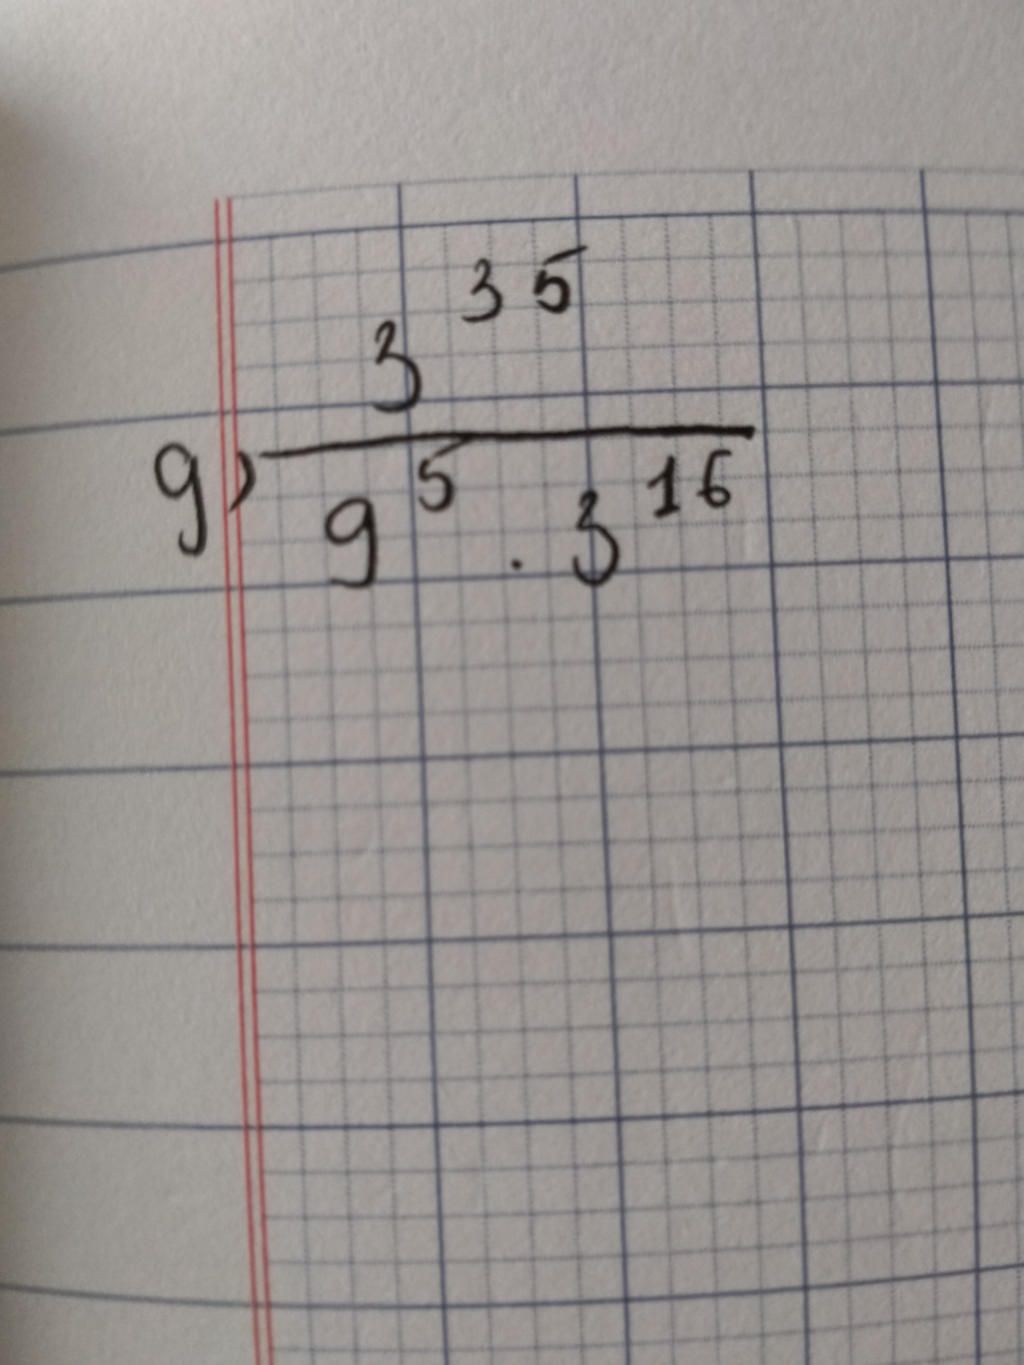 g) 3^35 / 9^5 . 3^16